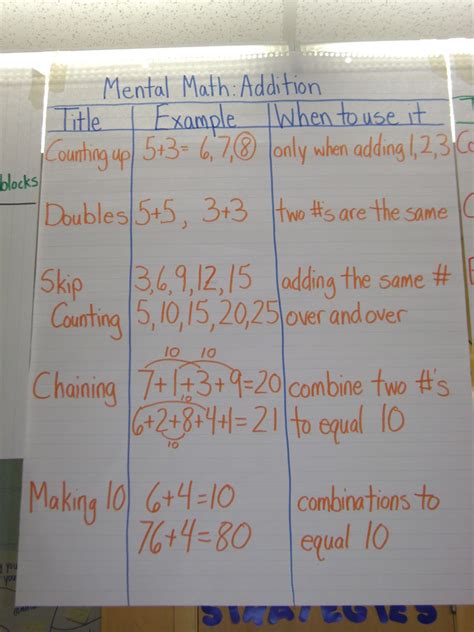 Mental Math: Addition
Title Example When to use it
Counting up 5+3= 6, 7, 8 only when adding 1, 2, 3
blocks
Doubles 5+5, 3+3 two #'s are the same
Skip 3, 6, 9, 12, 15 adding the same #
Counting 5, 10, 15, 20, 25 over and over
10 10
Chaining 7+1+3+9=20 combine two #'s
10
6+2+8+4+1=21 to equal 10
10
Making 10 6+4=10 combinations to
76+4=80 equal 10
you
STRATEGIES